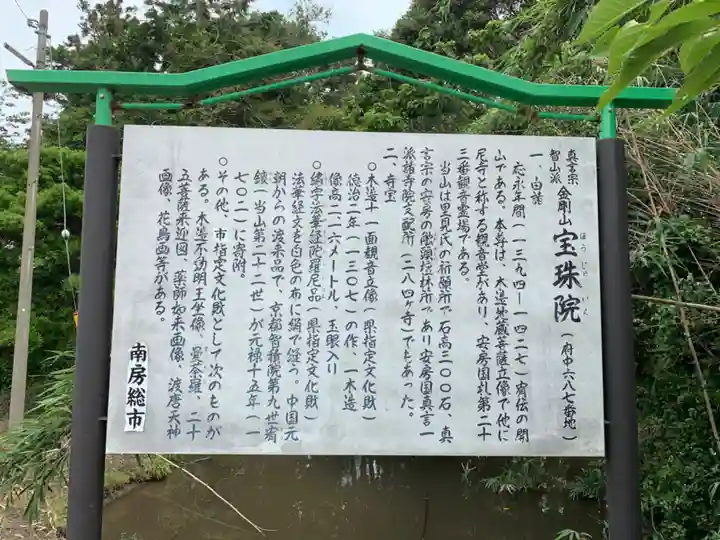 真言宗
智山派
金剛山 宝珠院 (府中六八七番地)
ほうじゅいん
一、由諸
応永年間(一三九四ー一四二七)宥伝の開
山である。本尊は、木造地蔵菩薩立像で他に
尼寺と称する観音堂があり、安房国札第二十
三番観音霊場である。
当山は里見氏の祈願所で石高三〇〇石、真
言宗の安房の触頭檀林所であり安房国真言一
派諸寺院支配所(二八四ケ寺)でもあった。
二、寺宝
○木造十一面観音立像(県指定文化財)
徳治二年(一三〇七)の作、一木造
像高二・二六メートル、玉眼入り
○繍字法華経陀羅尼品(県指定文化財)
法華経文を白色の布に絹で縫う。中国元
朝からの渡来品で、京都智積院第九世宥
鑁(当山第二十二世)が元禄十五年(一
七〇二)に寄附。
○その他、市指定文化財として次のものが
ある。木造不動明王坐像、曼荼羅、二十
五菩薩来迎図、薬師如来画像、渡唐天神
画像、花鳥画等がある。
南房総市